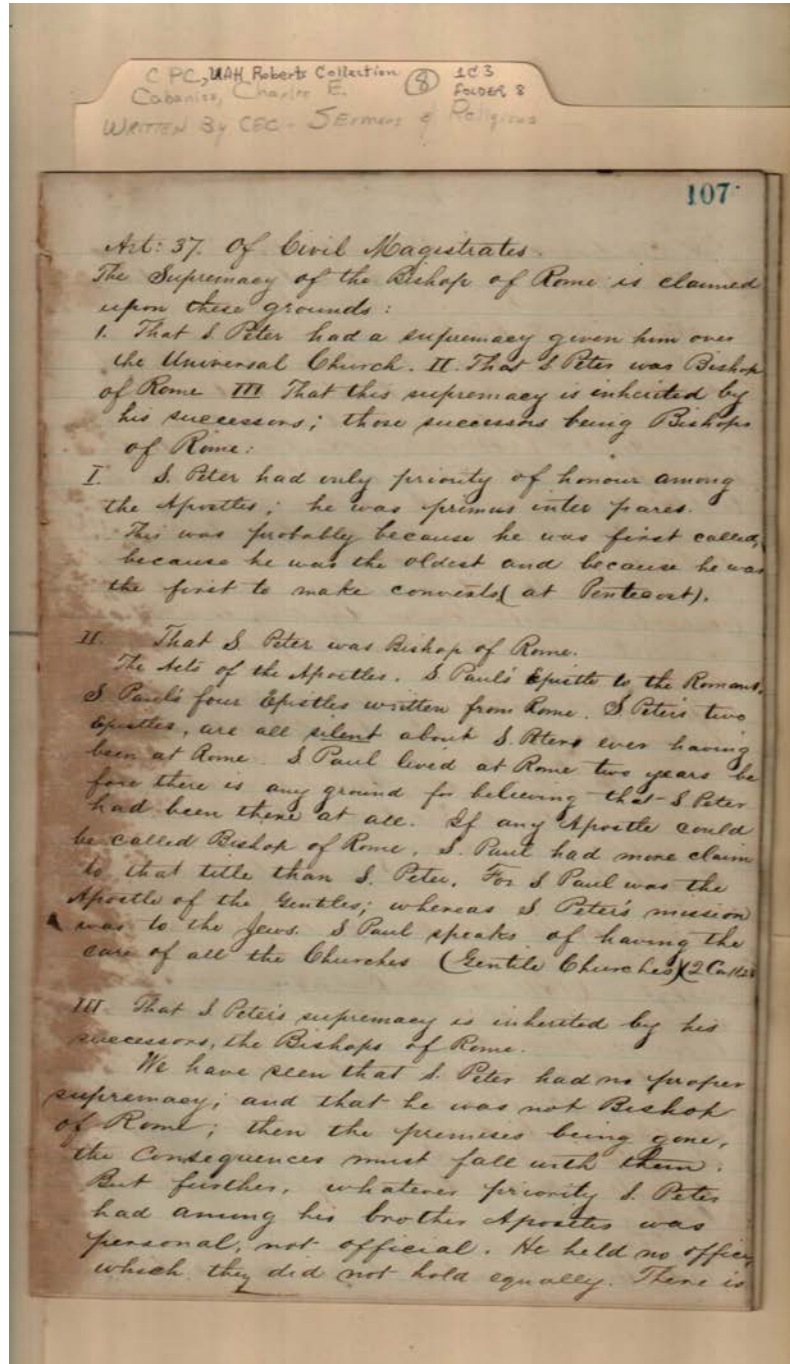 C PC, UAH Roberts Collection 8 1C3
Cabaniss, Charles E. FOLDER 8
WRITTEN By CEC - SErmons & Religious
107
Art: 37. Of Civil Magistrates.
The Supremacy of the Bishop of Rome is claimed
upon these grounds:
1. That S. Peter had a supremacy given him over
the Universal Church. II. That S Peter was Bishop
of Rome III That this supremacy is inherited by
his successors; those successors being Bishops
of Rome:
I. S. Peter had only priority of honour among
the Apostles; he was primus inter pares.
This was probably because he was first called,
because he was the oldest and because he was
the first to make converts( at Pentecost).
II. That S. Peter was Bishop of Rome.
The Acts of the Apostles. S Paul's Epistle to the Romans.
S Paul's four Epistles written from Rome. S. Peter's two
Epistles, are all silent about S. Peters ever having
been at Rome. S Paul lived at Rome two years be
fore there is any ground for believing that S Peter
had been there at all. If any Apostle could
be called Bishop of Rome, S. Paul had more claim
to that title than S. Peter. For S Paul was the
Apostle of the Gentles; whereas S Peter's mission
was to the Jews. S Paul speaks of having the
care of all the Churches (Gentile Churches)(2 Cor 11.28
III That S Peter's supremacy is inherited by his
successors, the Bishops of Rome.
We have seen that S. Peter had no proper
supremacy; and that he was not Bishop
of Rome; then the premises being gone,
the consequences must fall with them.
But further, whatever priority S. Peter
had among his brother Apostles was
personal, not official. He held no office,
which they did not hold equally. There is